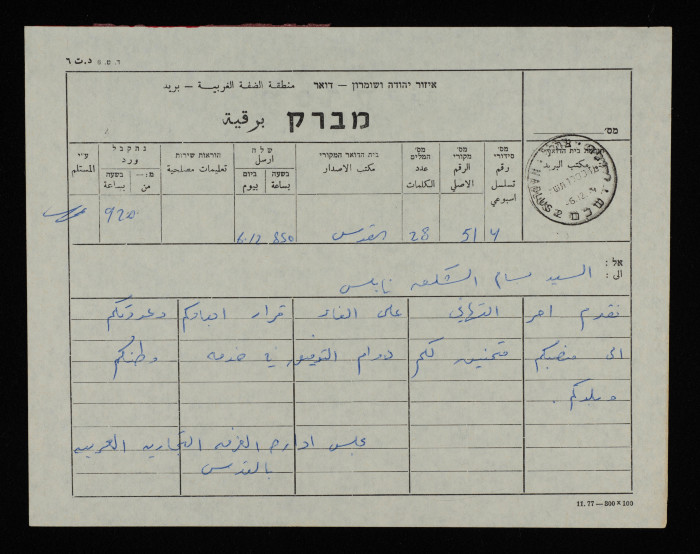 ד.ת 6 ד. מ. 6
איזור יהודה ושומרון — דואר منطقة الضفة الغربية — بريد
מברק برقية
מס׳
מס׳ סידורי رقم تسلسل اسبوعي
מס׳ מקורי الرقم الاصلي
מס׳ המלים عدد الكلمات
בית הדואר המקורי مكتب الاصدار
שלח ارسل
בשעה بساعة
ביום بيوم
הוראות שירות تعليمات مصلحية
נתקבל ورد
מ:— من
בשעה بساعة
ע״י المستلم
בית הדואר مكتب البريد
שכם
6.12
4 51 28 القدس 850 6.12 920
אל:
الى: السيد بسام الشكعه نابلس
نقدم احر التهاني على الغاء قرار ابعادكم وعودتكم
الى منصبكم متمنين لكم دوام التوفيق في خدمة وطنكم
وبلدكم.
مجلس ادارة الغرفه التجاريه العربيه
بالقدس
11.77—800×100